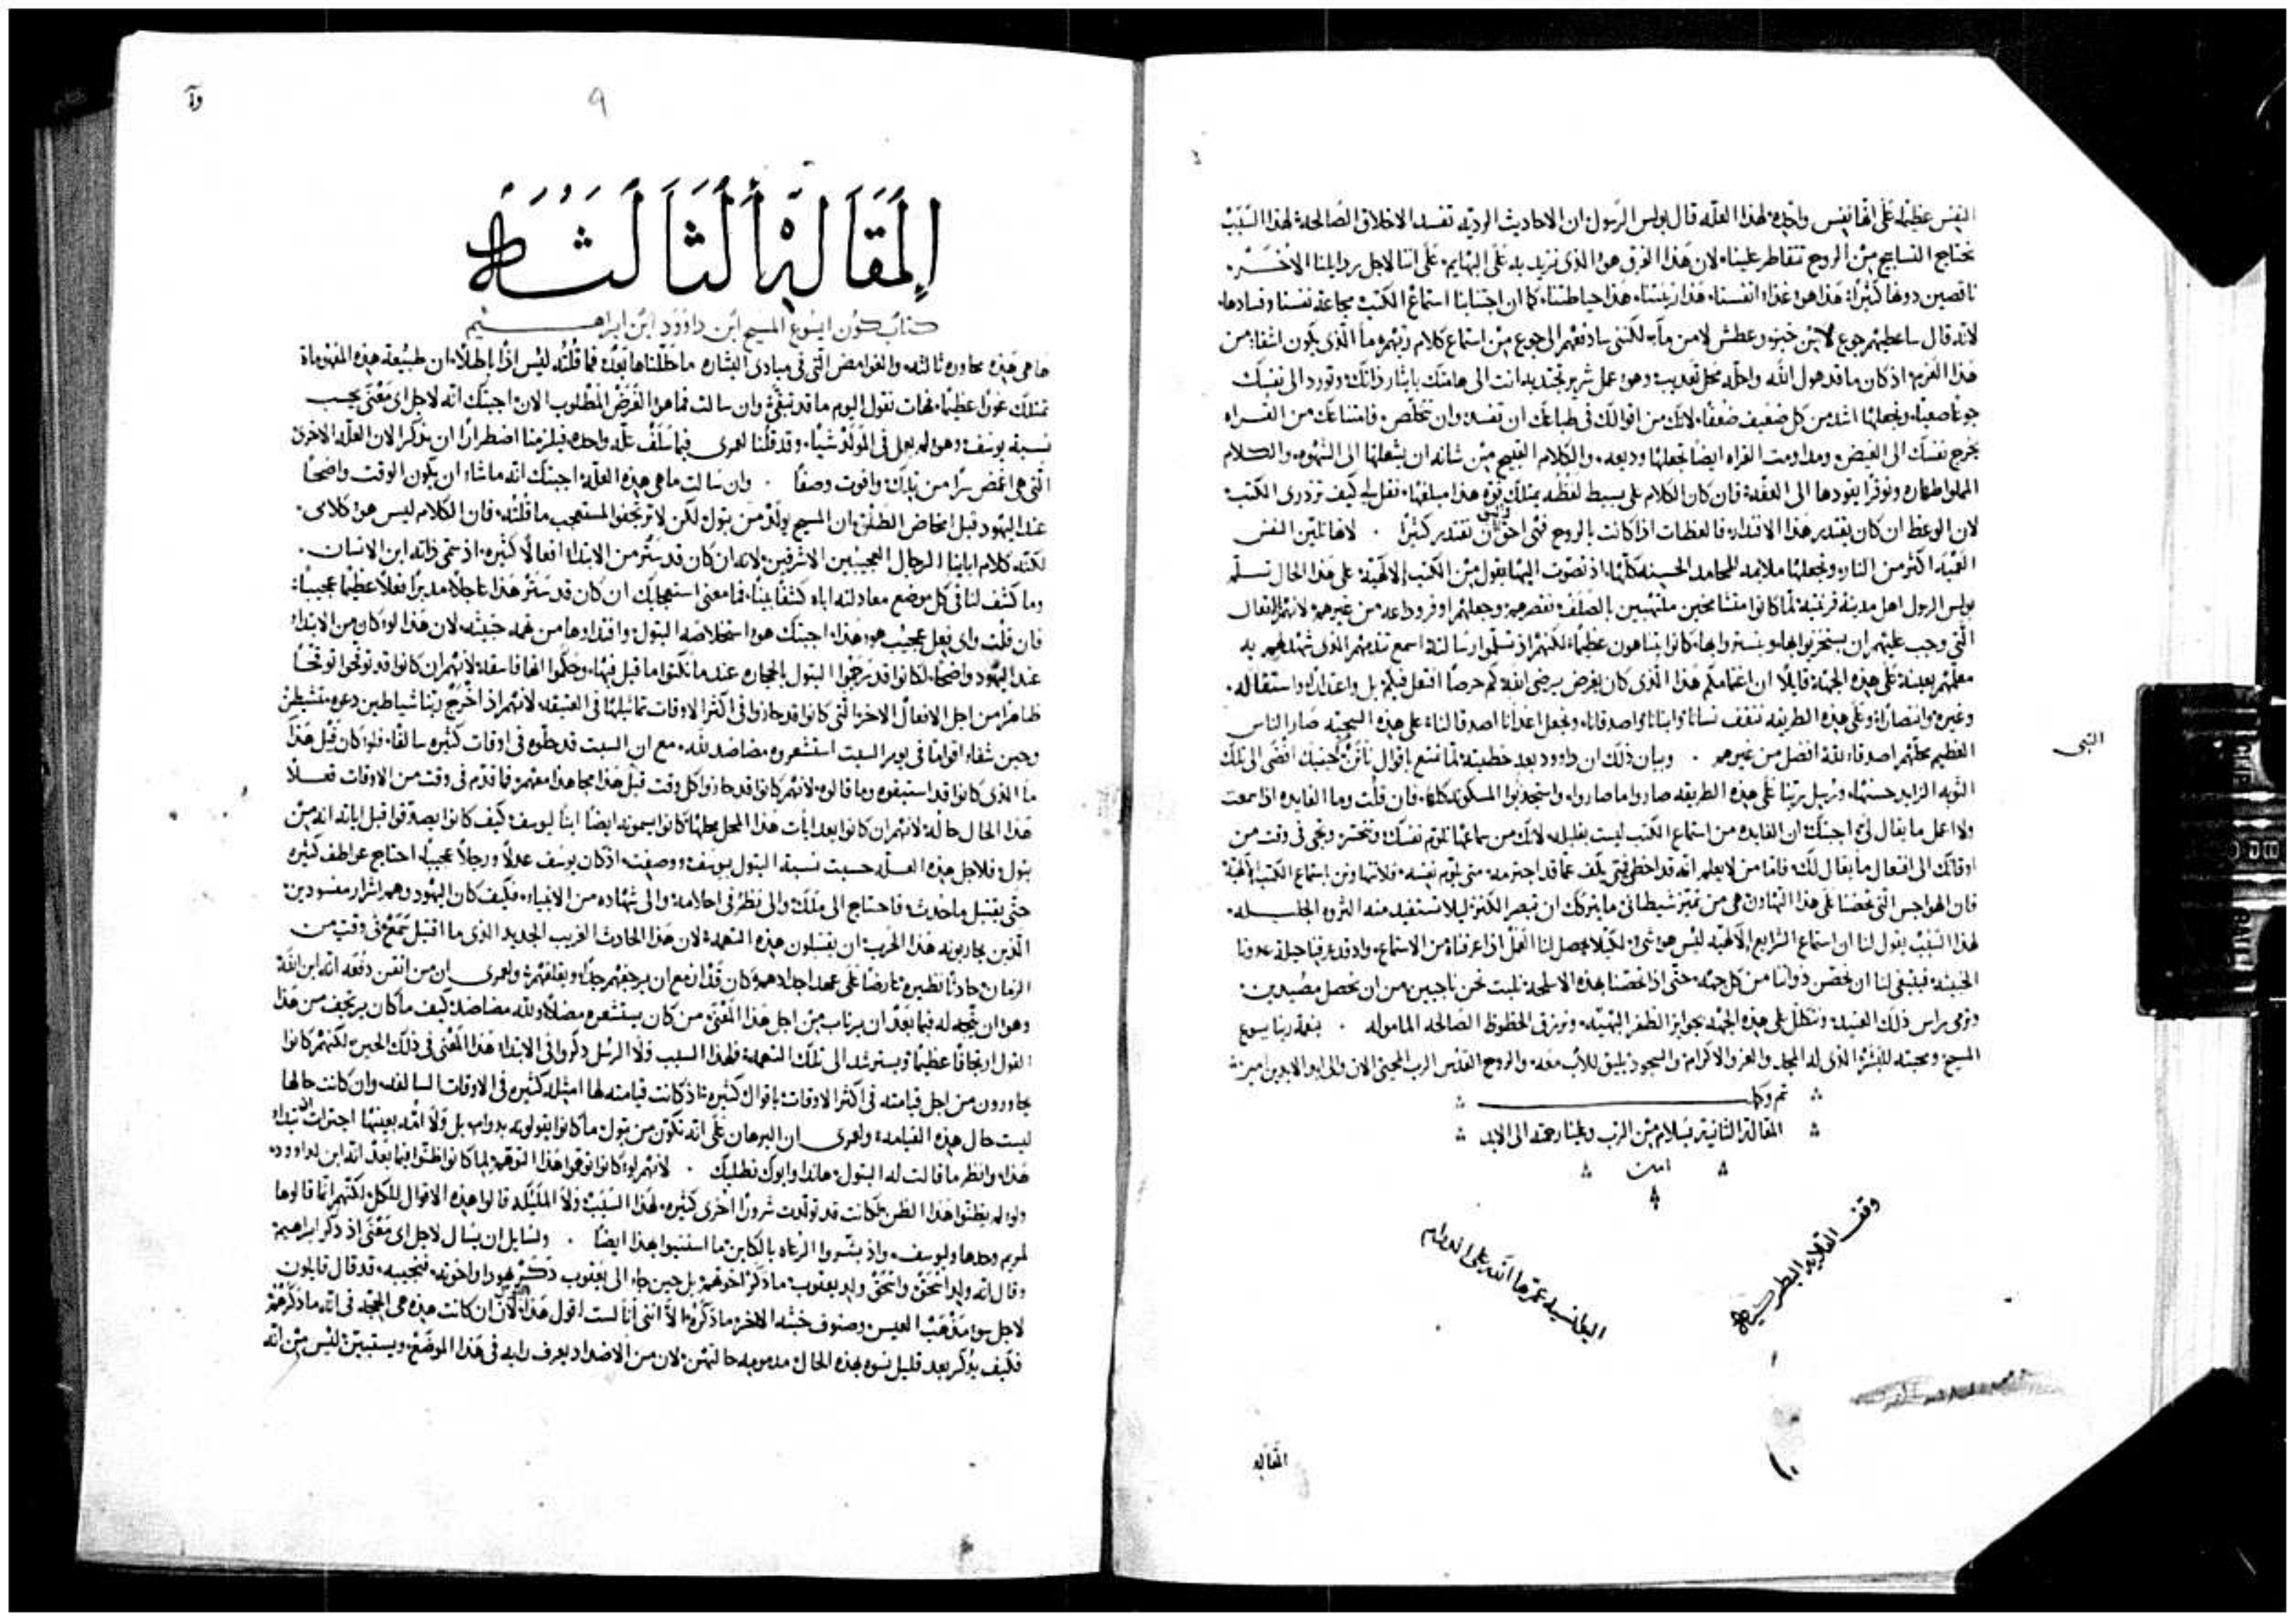 النفس عظيمه على انها نفس واحده لهذا العله قال بولس الرسول ان الاحاديث الرديه تفسد الاخلاق الصالحه لهذا السبب
نحتاج النسايج من الروح تتقاطر علينا لان هذا الفرق هو الذى نزيد به على البهايم على اننا لاجل رذايلنا الاخر
ناقصين دونها كثيرًا هذا هو غذاء انفسنا هذا زينتنا هذا حياطتنا كما ان اجتنابنا استماع الكتب مجاعة نفسنا وفسادها
لانه قال ساعطيهم جوع لا من خبز وعطش لا من ماء لكننى سادفعهم الى جوع من استماع كلام ربهم وما الذى يكون اشقا من
هذا الغرم اذ كان ما قد هول الله واحله محل تعذيب وهو عمل شرير تجتذبه انت الى هامتك بايثار ذاتك وتورد الى نفسك
جوعًا صعبًا وتجعلها اشد من كل ضعيف ضعفًا لانك من اقوالك فى طباعك ان تفسد وان تتخلص فامتناعك من القراه
يخرج نفسك الى الغيض ومداومت القراه ايضًا تجعلها وديعه والكلام القبيح من شانه ان يشعلها الى الشهوه والكلام
المملو اطهاره ونوقرًا يقودها الى العفه فان كان الكلام على بسيط لفظه يمتلك قوة هذا مبلغها فقل لى كيف تزدرى الكتب
لان الوعظ ان كان يقتدر هذا الاقتدار فالعظات اذا كانت بالروح فهى احق ان تقتدر كثيرًا . لانها تلين النفس
القسيه اكثر من النار وتجعلها ملايمه للمحامد الحسنه كلها اذ تصوت اليها بقول من الكتب الالهيه على هذا الحال تسلم
بولس الرسول اهل مدينة قرنتيه لما كانوا متشامخين ملتهبين بالصلف فقصرهم وجعلهم اوفر وداعه من غيرهم لانهم الافعال
التى وجب عليهم ان يستخزيوا بها ويستتروا بها كانوا يتباهون عظيمًا لكنهم اذ تسلموا رسالته اسمع تندمهم الذى شهد لهم به
معلمهم بعينه على هذه الجهه قايلًا ان اغتمامكم هذا الذى كان بغرض يرضى الله كم حرصًا افتعل فيكم بل واعتذارًا واستقاله
وغيره وانتصارًا وعلى هذه الطريقه نثقف نسانا وابنانا واصدقانا ونجعل اعدانا اصدقا لنا على هذه السجيه صار الناس
العظيم محلهم اصدقاء لله افضل من غيرهم . وبيان ذلك ان داوود بعد خطيته لما تمتع باقوال ناثن حينيذ افضى الى تلك
النبى
التوبه الزايد حسنها ورسل ربنا على هذه الطريقه صاروا ما صاروا واستجذبوا المسكونه كلها فان قلت وما الفايده اذا سمعت
ولا اعمل ما يقال لى اجبتك ان الفايده من استماع الكتب ليست بقليله لانك من سماعها تلوم نفسك وتتحسر وتجى فى وقت من
اوقاتك الى افتعال ما يقال لك فاما من لا يعلم انه قد اخطى فمتى يكف عما قد اجترمه متى يلوم نفسه فلا نتهاون من استماع الكتب الالهيه
فان الهواجس التى تحضنا على هذا التهاون هى من تميز شيطانى ما يتركك ان تبصر الكنز ليلا تستفيد منه الثروه الجليله
لهذا السبب يقول لنا ان استماع الشرايع الالهيه ليس هو شى لكيلا يحصل لنا العمل اذا عرفناه من الاستماع واذ قد عرفنا حيلة عدونا
الخبيثه فينبغى لنا ان نحصن ذواتنا من كل جهه حتى اذا تحصنا بهذه الاسلحه نلبث نحن ناجيين من ان نحصل مصيدين
ونومى براس ذلك العنيد ونتكلل على هذه الجهه بجوايز الظفر البهيه ونرزق الحظوظ الصالحه الماموله . بنعمة ربنا يسوع
المسيح ومحبته للبشر الذى له المجد والعز والاكرام والسجود يليق للاب معه والروح القدس الرب المحيى الان والى ابد الابدين امين
تم وكمل
المقالة الثانية بسلام من الرب وعلينا رحمته الى الابد
امين
وقف القلايه البطرسيه
البطانسيه عمرها الله على الدوام
المقاله
٩
المقالة الثالثه
كتاب كون ايسوع المسيح ابن داوود ابن ابراهيم
ها هى هذه محاوره ثالثه والغوامض التى فى مبادى البشاره ما حللناها بعد فما قلته ليس اذًا باطلًا ان طبيعة هذه المفهوماة
تمتلك غورًا عظيمًا فهات نقول اليوم ما قد تبقى وان سالت فما هو الغرض المطلوب الان اجبتك انه لاجل اى معنى يحسب
نسبة يوسف وهو لم يعمل فى المولد شيًا وقد قلنا لعمرى فيما سلف علة واحده فيلزمنا اضطرارًا ان نذكر الان العله الاخرى
التى هى اغمض سرًا من تلك وافوت وصفًا . وان سالت ما هى هذه العله اجبتك انه ما شاء ان يكون الوقت واضحًا
عند اليهود قبل امخاض الطلق ان المسيح يولد من بتول لكن لا ترتجفوا لمستعجب ما قلته فان الكلام ليس هو كلامى
لكنه كلام ابايناالرجال العجيبين الاشرفين لانه ان كان قد ستر من الابتداء افعالًا كثيره اذ سمى ذاته ابن الانسان
وما كشف لنا فى كل موضع معادلته اباه كشفًا بينًا فما معنى استعجابك ان كان قد ستر هذا عاجلًا مدبرًا فعلًا عظيمًا عجيبًا
فان قلت واى فعل عجيب هو هذا اجبتك هو استخلاصه البتول واقتداوها من تهمه خبيثه لان هذا لو كان من الابتداء
عند اليهود واضحًا لكانوا قد رجموا البتول بالحجاره عند ما نكثوا ما قيل فيها وحكموا انها فاسقه لانهم ان كانوا قد توقحوا توقحًا
ظاهرًا من اجل الافعال الاخر التى كانوا قد حازوا فى اكثر الاوقات تماثيلها فى العتيقه لانهم اذ اخرج ربنا شياطين دعوه متشيطن
وحين شفاء اقوامًا فى يوم السبت استشعروه مضاضد لله مع ان السبت قد حلوه فى اوقات كثيره سالفًا فلو كان قيل هذا
ما الذى كانوا قد استبقوه وما قالوه لانهم كانوا قد حازوا كل وقت قبل هذا مجاهدًا معهم فما قدم فى وقت من الاوقات فعلًا
هذا الحال حاله لانهم ان كانوا بعد ايات هذا المحل محلها كانوا يسمونه ايضًا ابنًا ليوسف كيف كانوا يصدقوا قبل اياته انه من
بتول فلاجل هذه العله حسبت نسبة البتول بيوسف ووصفت اذ كان يوسف عدلًا ورجلًا عجيبًا احتاج عواطف كثيره
حتى يقتبل ما حدث فاحتاج الى ملك والى نظر فى احلامه والى شهاده من الانبياء فكيف كان اليهود وهم اشرار مفسودين
الذين يحاربونه هذا الحرب ان يقبلون هذه التهمه لان هذا الحادث الغريب الجديد الذى ما اقتبل سمع فى وقت من
الزمان حادثًا نظيره عارضًا على عهد اجدادهم كان قد ازمع ان يرجفهم جدًا ويقلقهم ولعمرى ان من اتقن دفعه انه ابن الله
وهو ان يتجه له فيما بعد ان يرتاب من اجل هذا المعنى من كان يستشعره مضلًا ولله مضاضد كيف ما كان يرتجف من هذا
القول ارتجافًا عظيمًا ويسترشد الى تلك التهمه فلهذا السبب ولا الرسل ذكروا فى الابتداء هذا المعنى فى ذلك الحين لكنهم كانوا
يحاورون من اجل قيامته فى اكثر الاوقات باقوال كثيره اذ كانت قيامته لها امثله كثيره فى الاوقات السالفه وان كانت حالها
ليست حال هذه القيامه ولعمرى ان البرهان على انه تكون من بتول ما كانوا يقولونه بدوام بل ولا امه بعينها اجترات تبدا
هذا وانظر ما قالت له البتول هاندا وابوك نطلبك . لانهم لو كانوا توقوا هذا التوقم لما كانوا ظنوا فيما بعد انه ابن لداوود
ولو لم يظنوا هذا الظن لكانت قد تولدت شرورًا اخرى كثيره لهذا السبب ولا المليكه قالوا هذه الاقوال للكل لكنهم انما قالوها
لمريم وحدها وليوسف واذ بشروا الرعاه بالكاين ما استنبوا بهذا ايضًا . ولسايل ان يسال لاجل اى معنى اذ ذكر ابراهيم
وقال انه ولد اسحق واسحق ولد يعقوب ما ذكر اخوتهم بل حين جاء الى يعقوب ذكر يهودا واخوته فنجيبه قد قال قايلون
لاجل سوء مذهب العيس وصنوف خبثه الاخر ما ذكره الا اننى انا لست اقول هذا القول لان ان كانت هذه هى الحجه فى انه ما ذكرهم
فكيف يذكر بعد قليل نسوه بهذه الحال مذمومه حالتهن لان من الاضداد يعرف رايه فى هذا الموضع ويستبين ليس من انه